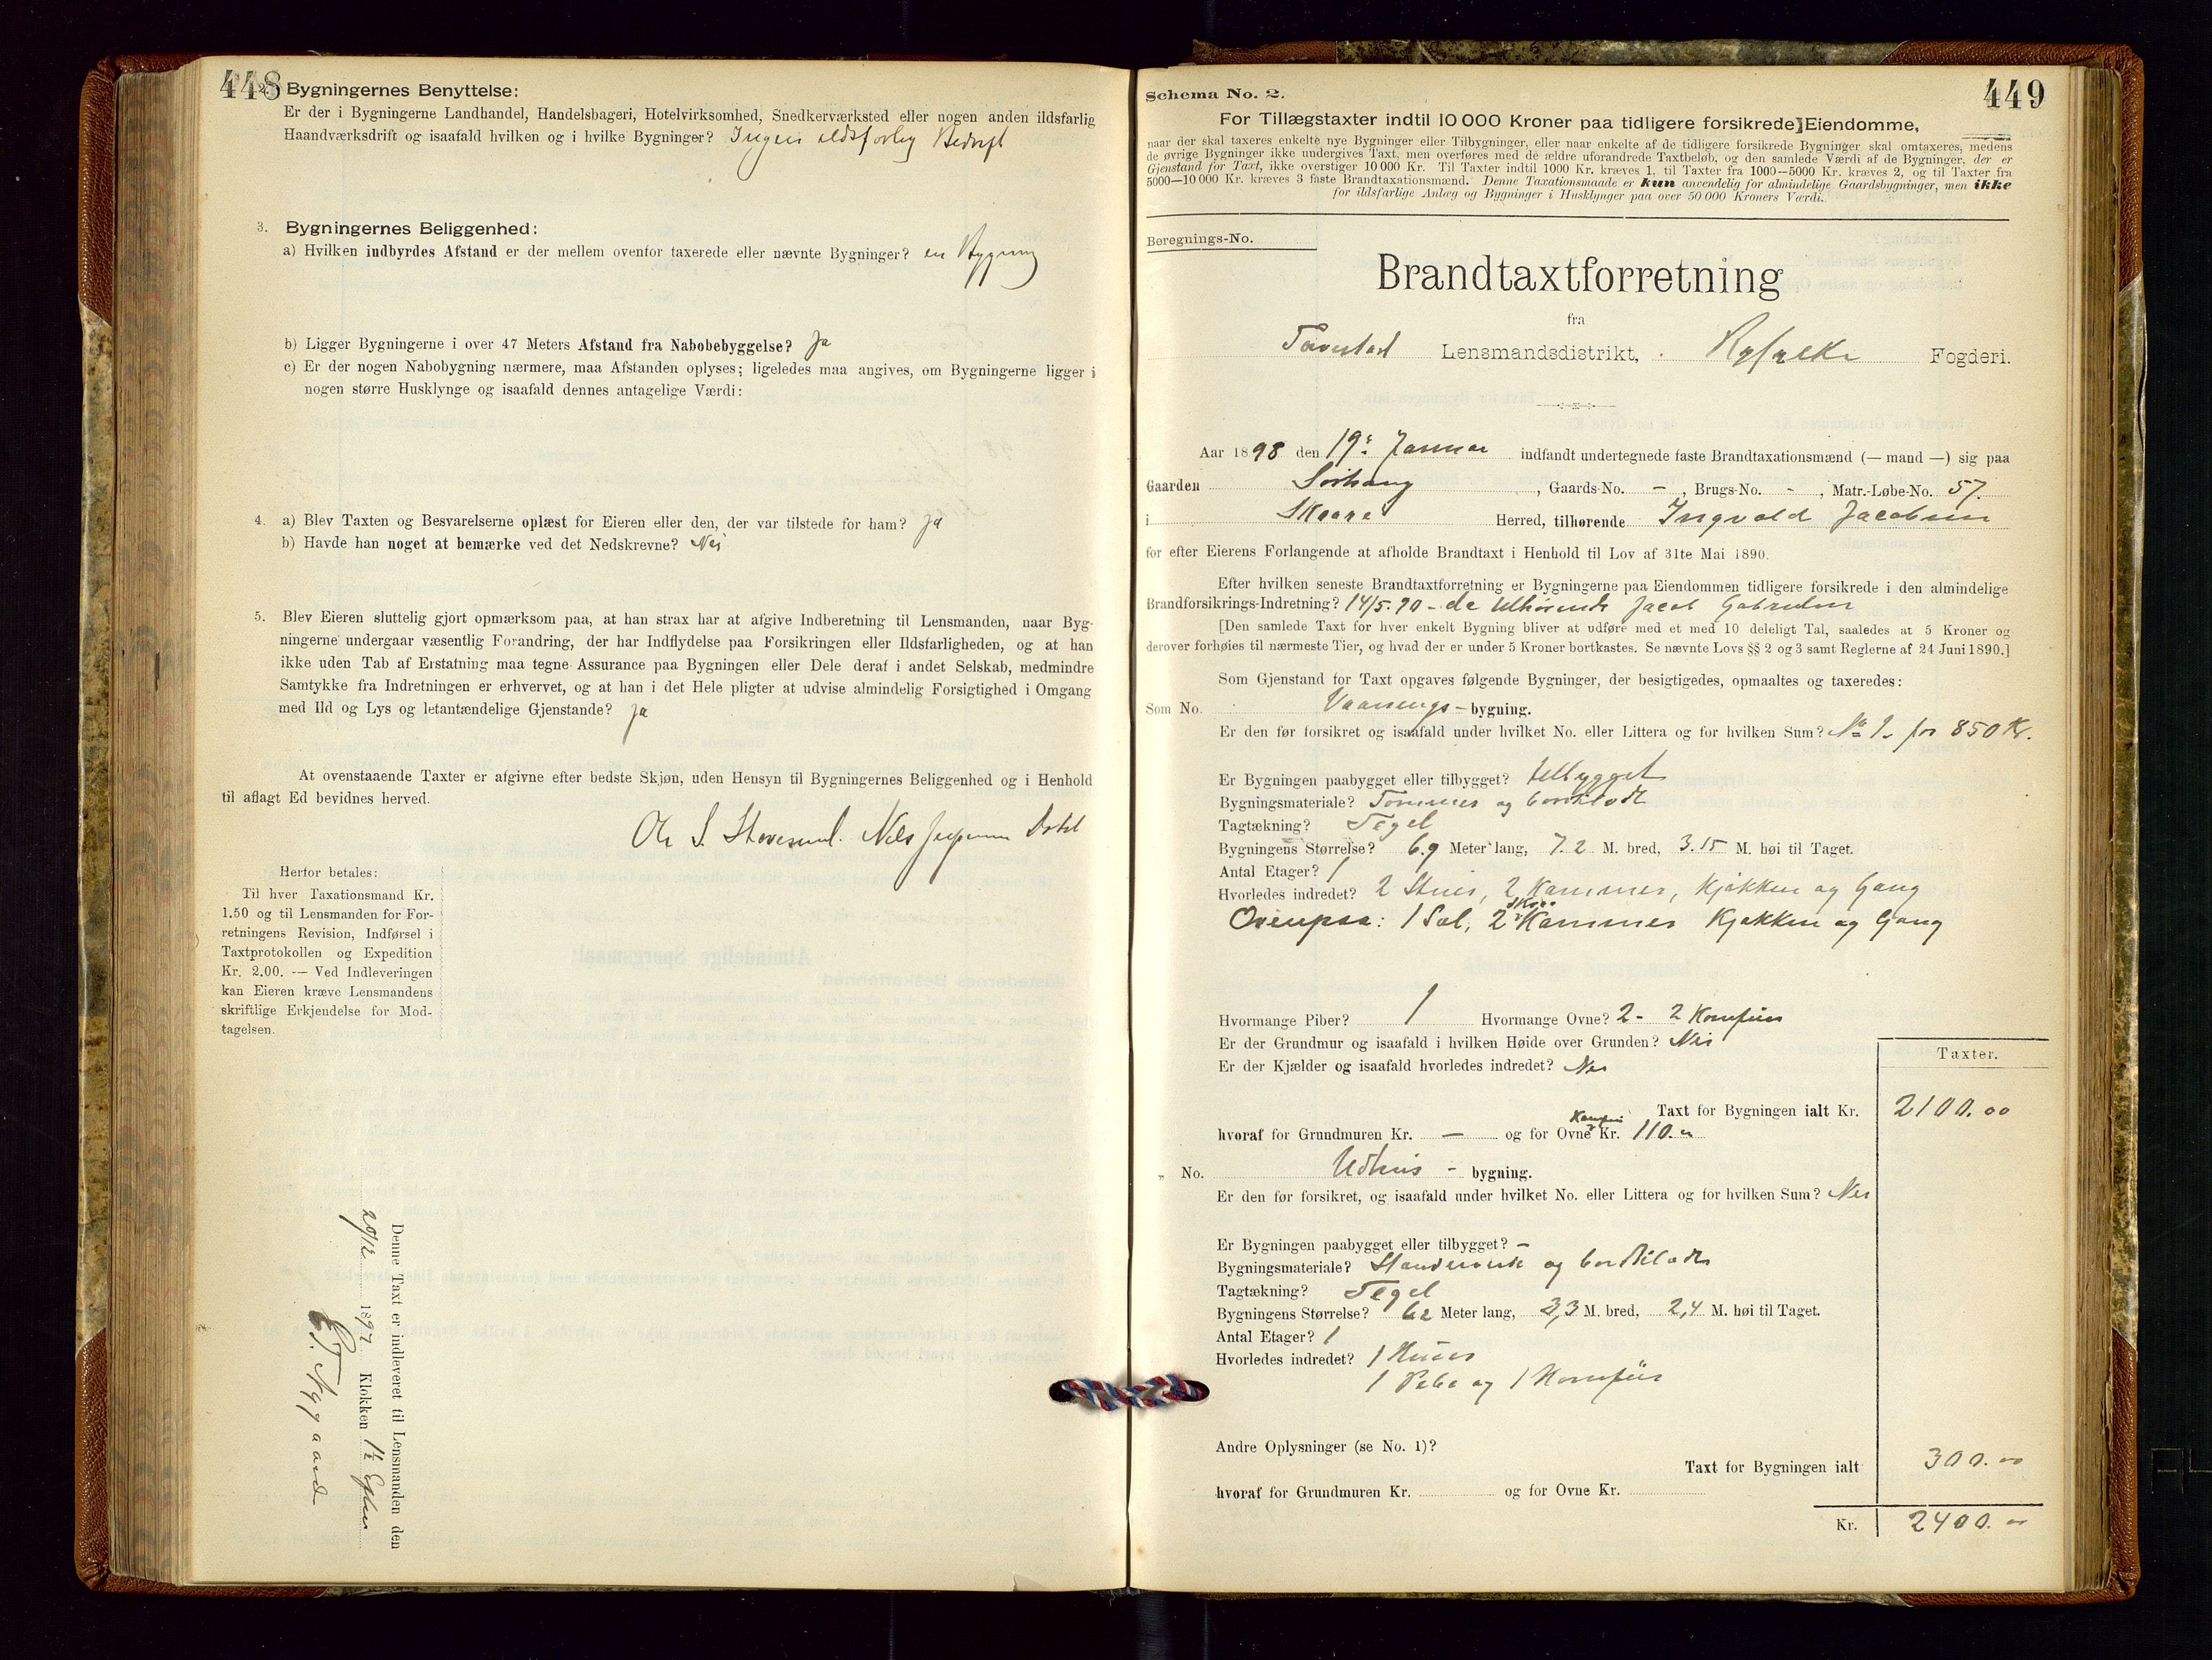 448
2. Bygningernes Benyttelse:
Er der i Bygningerne Landhandel, Handelsbageri, Hotelvirksomhed, Snedkerværksted eller nogen anden ildsfarlig
Haandværksdrift og isaafald hvilken og i hvilke Bygninger? Ingen ildsfarlig Bedrift
3. Bygningernes Beliggenhed:
a) Hvilken indbyrdes Afstand er der mellem ovenfor taxerede eller nævnte Bygninger? en Bygning
b) Ligger Bygningerne i over 47 Meters Afstand fra Nabobebyggelse? Ja
c) Er der nogen Nabobygning nærmere, maa Afstanden oplyses; ligeledes maa angives, om Bygningerne ligger i
nogen større Husklynge og isaafald dennes antagelige Værdi:
4. a) Blev Taxten og Besvarelserne oplæst for Eieren eller den, der var tilstede for ham? Ja
b) Havde han noget at bemærke ved det Nedskrevne? Nei
5. Blev Eieren sluttelig gjort opmærksom paa, at han strax har at afgive Indberetning til Lensmanden, naar Byg-
ningerne undergaar væsentlig Forandring, der har Indflydelse paa Forsikringen eller Ildsfarligheden, og at han
ikke uden Tab af Erstatning maa tegne Assurance paa Bygningen eller Dele deraf i andet Selskab, medmindre
Samtykke fra Indretningen er erhvervet, og at han i det Hele pligter at udvise almindelig Forsigtighed i Omgang
med Ild og Lys og letantændelige Gjenstande? Ja
At ovenstaaende Taxter er afgivne efter bedste Skjøn, uden Hensyn til Bygningernes Beliggenhed og i Henhold
til aflagt Ed bevidnes herved.
Ole S. Nils
Herfor betales:
Til hver Taxationsmand Kr.
1.50 og til Lensmanden for For-
retningens Revision, Indførsel i
Taxtprotokollen og Expedition
Kr. 2.00. — Ved Indleveringen
kan Eieren kræve Lensmandens
skriftlige Erkjendelse for Mod-
tagelsen.
Denne Taxt er indleveret til Lensmanden den
20/12 1897 Klokken 1½
Nygaard
449
Schema No. 2.
For Tillægstaxter indtil 10 000 Kroner paa tidligere forsikrede Eiendomme,
naar der skal taxeres enkelte nye Bygninger eller Tilbygninger, eller naar enkelte af de tidligere forsikrede Bygninger skal omtaxeres, medens
de øvrige Bygninger ikke undergives Taxt, men overføres med de ældre uforandrede Taxtbeløb, og den samlede Værdi af de Bygninger, der er
Gjenstand for Taxt, ikke overstiger 10 000 Kr. Til Taxter indtil 1000 Kr. kræves 1, til Taxter fra 1000—5000 Kr. kræves 2, og til Taxter fra
5000—10 000 Kr. kræves 3 faste Brandtaxationsmænd. Denne Taxationsmaade er kun anvendelig for almindelige Gaardsbygninger, men ikke
for ildsfarlige Anlæg og Bygninger i Husklynger paa over 50 000 Kroners Værdi.
Beregnings-No.
Brandtaxtforretning
fra
Torvestad Lensmandsdistrikt, Ryfylke Fogderi.
Aar 1898 den 19de Januar indfandt undertegnede faste Brandtaxationsmænd (— mand —) sig paa
Gaarden Sørhaug, Gaards-No. -, Brugs-No. -, Matr.-Løbe-No. 57.
i Skaare Herred, tilhørende Ingvald Jacobsen
for efter Eierens Forlangende at afholde Brandtaxt i Henhold til Lov af 31te Mai 1890.
Efter hvilken seneste Brandtaxtforretning er Bygningerne paa Eiendommen tidligere forsikrede i den almindelige
Brandforsikrings-Indretning? 14/5.90 - da tilhørende Jacob Gabrielsen
[Den samlede Taxt for hver enkelt Bygning bliver at udføre med et med 10 deleligt Tal, saaledes at 5 Kroner og
derover forhøies til nærmeste Tier, og hvad der er under 5 Kroner bortkastes. Se nævnte Lovs §§ 2 og 3 samt Reglerne af 24 Juni 1890.]
Som Gjenstand for Taxt opgaves følgende Bygninger, der besigtigedes, opmaaltes og taxeredes:
Som No. Vaanings-bygning.
Er den før forsikret og isaafald under hvilket No. eller Littera og for hvilken Sum? No 1. for 850 Kr.
Er Bygningen paabygget eller tilbygget? tilbygget
Bygningsmateriale? Tømmer og bordklædt
Tagtækning? Tegel
Bygningens Størrelse? 6.9 Meter lang, 7.2 M. bred, 3.15 M. høi til Taget.
Antal Etager? 1
Hvorledes indredet? 2 Stuer, 2 Kammer, Kjøkken og Gang
Ovenpaa: 1 Sal, 2 Kammer Kjøkken og Gang
Hvormange Piber? 1 Hvormange Ovne? 2 - 2 Komfüer
Er der Grundmur og isaafald i hvilken Høide over Grunden? Nei
Er der Kjælder og isaafald hvorledes indredet? Nei
Taxter.
Taxt for Bygningen ialt Kr. 2100.00
hvoraf for Grundmuren Kr. — og for Ovne Kr. 110.
" No. Udhus - bygning.
Er den før forsikret, og isaafald under hvilket No. eller Littera og for hvilken Sum? Nei
Er Bygningen paabygget eller tilbygget? —
Bygningsmateriale? Standerverk og bordklædt
Tagtækning? Tegel
Bygningens Størrelse? 62 Meter lang, 3,3 M. bred, 2,4 M. høi til Taget.
Antal Etager? 1
Hvorledes indredet? 1
1 Pibe og 1 Komfüer
Andre Oplysninger (se No. 1)?
Taxt for Bygningen ialt 300.00
hvoraf for Grundmuren Kr. og for Ovne Kr.
Kr. 2400.00